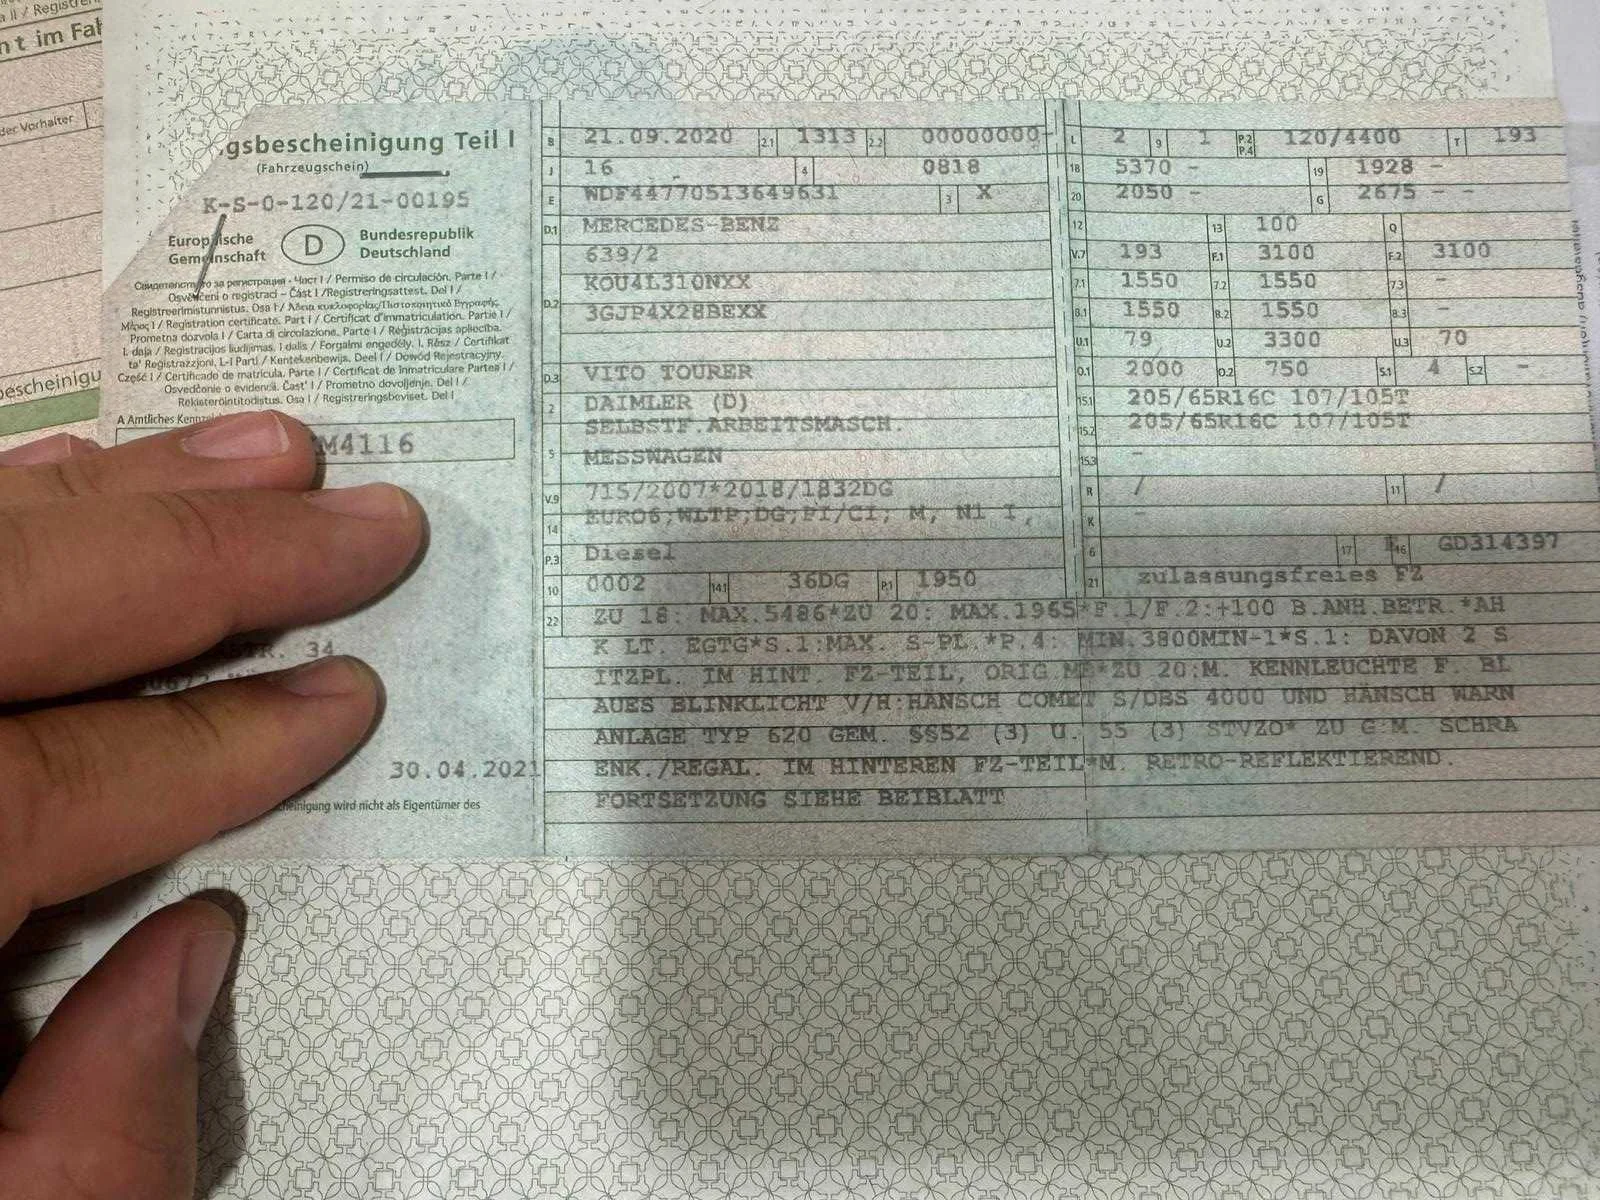 a II / Registr
nt im Fah
der Vorhalter
bescheinigu
gsbescheinigung Teil I
(Fahrzeugschein)
K-S-0-120/21-00195
Europäische Gemeinschaft
D
Bundesrepublik Deutschland
Свидетелство за регистрация - Част I / Permiso de circulación. Parte I /
Osvědčení o registraci – Část I /Registreringsattest. Del I /
Registreerimistunnistus. Osa I / Άδεια κυκλοφορίας/Πιστοποιητικό Εγγραφής
Μέρος I / Registration certificate. Part I / Certificat d'immatriculation. Partie I /
Prometna dozvola I / Carta di circolazione. Parte I / Reģistrācijas apliecība.
I. daļa / Registracijos liudijimas. I dalis / Forgalmi engedély. I. Rész / Ċertifikat
ta' Reġistrazzjoni. L-I Parti / Kentekenbewijs. Deel I / Dowód Rejestracyjny.
Część I / Certificado de matrícula. Parte I / Certificat de înmatriculare Partea I /
Osvedčenie o evidencii. Časť I / Prometno dovoljenje. Del I /
Rekisteröintitodistus. Osa I / Registreringsbeviset. Del I
A Amtliches
M4116
STR. 34
30.04.2021
cheinigung wird nicht als Eigentümer des
B 21.09.2020 2.1 1313 2.2 00000000-
J 16 4 0818
E WDF44770513649631 3 X
D.1 MERCEDES-BENZ
639/2
D.2 KOU4L310NXX
3GJP4X28BEXX
D.3 VITO TOURER
2 DAIMLER (D)
5 SELBSTF.ARBEITSMASCH.
MESSWAGEN
V.9 715/2007*2018/1832DG
14 EURO6;WLTP;DG;PI/CI; M, N1 I,
P.3 Diesel
10 0002 14.1 36DG P.1 1950
L 2 9 1 P.2 P.4 120/4400 T 193
18 5370 - 19 1928 -
20 2050 - G 2675 - -
12 13 100 Q
V.7 193 F.1 3100 F.2 3100
7.1 1550 7.2 1550 7.3 -
8.1 1550 8.2 1550 8.3 -
U.1 79 U.2 3300 U.3 70
O.1 2000 O.2 750 S.1 4 S.2 -
15.1 205/65R16C 107/105T
15.2 205/65R16C 107/105T
15.3 -
R / 11 /
K -
6 17 16 GD314397
21 zulassungsfreies FZ
22 ZU 18: MAX.5486*ZU 20: MAX.1965*F.1/F.2:+100 B.ANH.BETR.*AH
K LT. EGTG*S.1:MAX. S-PL.*P.4: MIN.3800MIN-1*S.1: DAVON 2 S
ITZPL. IM HINT. FZ-TEIL, ORIG.ME*ZU 20:M. KENNLEUCHTE F. BL
AUES BLINKLICHT V/H:HÄNSCH COMET S/DBS 4000 UND HÄNSCH WARN
ANLAGE TYP 620 GEM. §§52 (3) U. 55 (3) STVZO* ZU G:M. SCHRA
ENK./REGAL. IM HINTEREN FZ-TEIL*M. RETRO-REFLEKTIEREND.
FORTSETZUNG SIEHE BEIBLATT